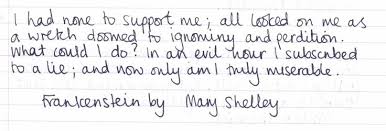 I had none to support me; all looked on me as
a wretch doomed to ignominy and perdition.
What could I do? In an evil hour I subscribed
to a lie; and now only am I truly miserable.
Frankenstein by Mary Shelley